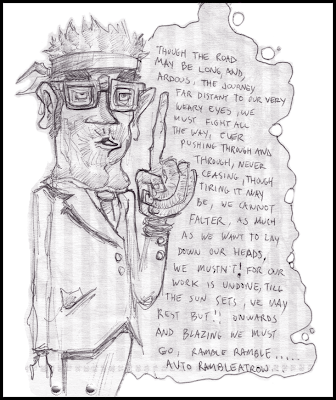 THOUGH THE ROAD
MAY BE LONG AND,
ARDOUS, THE JOURNEY
FAR DISTANT TO OUR VERY
WEARY EYES, WE
MUST FIGHT ALL
THE WAY, EVER
PUSHING THROUGH AND
THROUGH, NEVER
CEASING, THOUGH
TIRING IT MAY
BE, WE CANNOT
FALTER, AS MUCH
AS WE WANT TO LAY
DOWN OUR HEADS,
WE MUSTN'T! FOR OUR
WORK IS UNDONE, TILL
THE SUN SETS, WE MAY
REST BUT!, ONWARDS
AND BLAZING WE MUST
GO, RAMBLE RAMBLE.....
AUTO RAMBLEATROW...